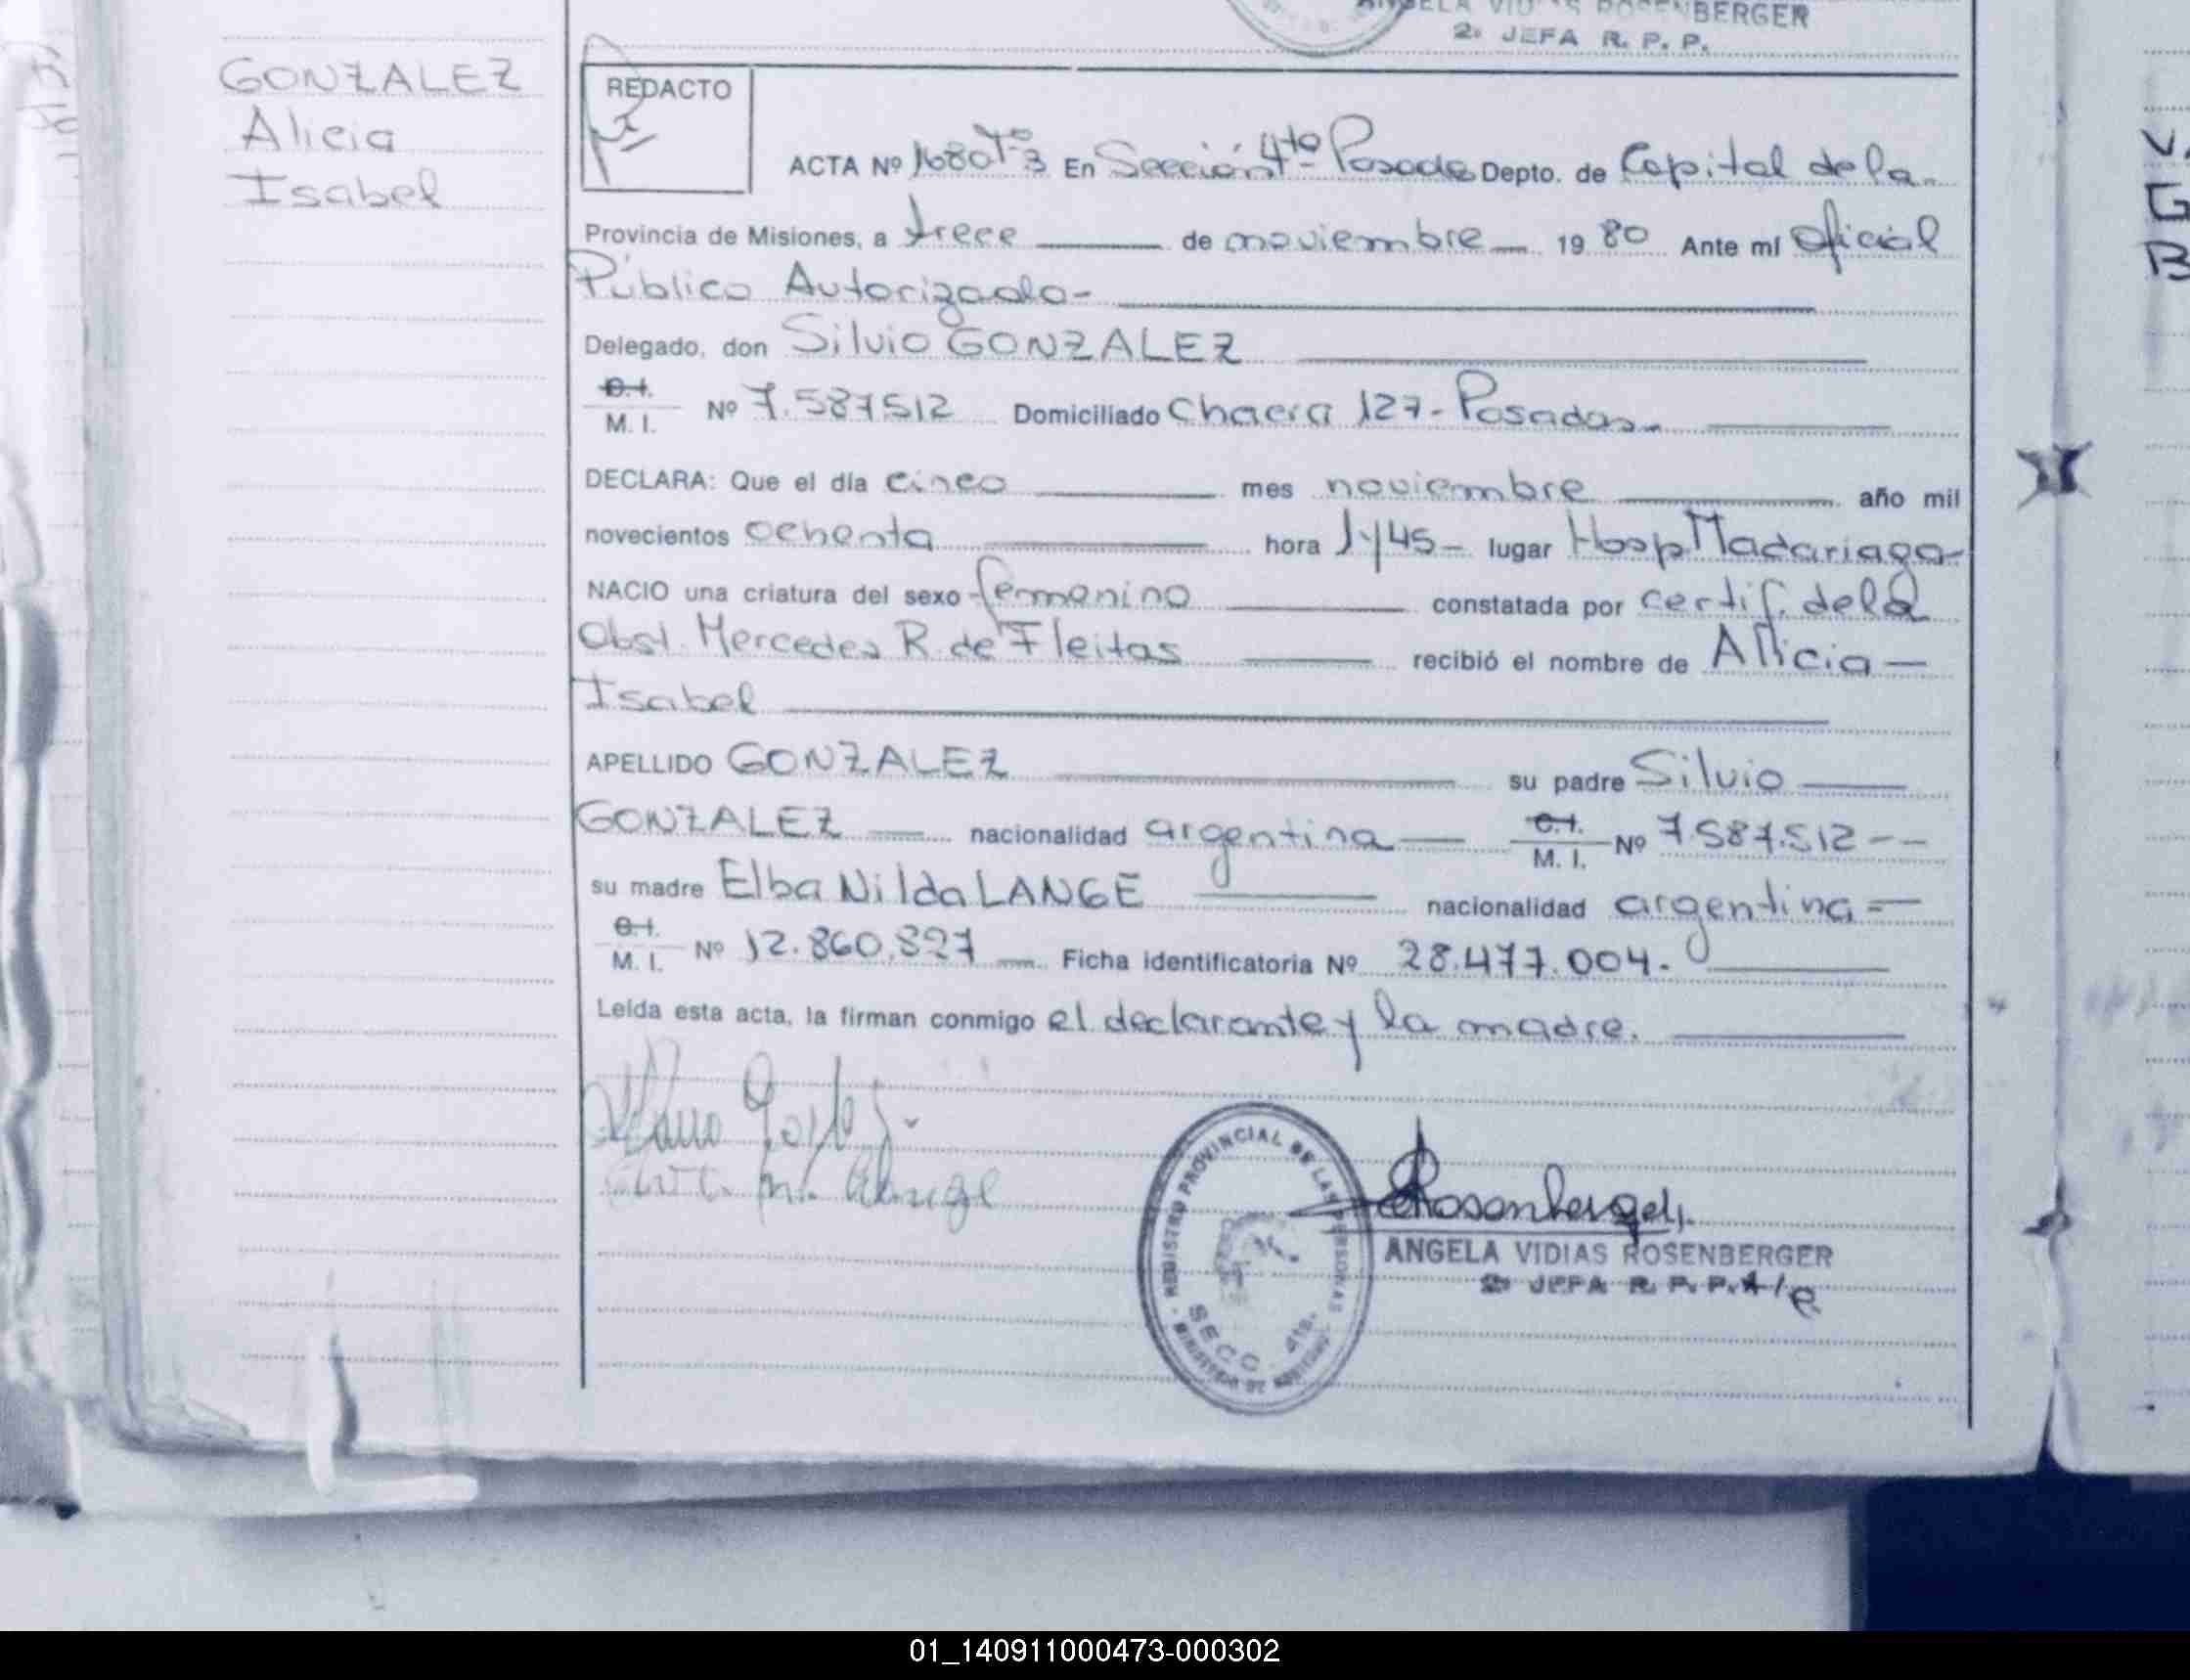 BERGER
2ª JEFA R. P. P.
GONZALEZ
Alicia
Isabel
REDACTO
ACTA Nº 1680 Tº 3 En Sección 4ta Posadas Depto. de Capital de la
Provincia de Misiones, a trece de noviembre 1980 Ante mí Oficial
Público Autorizado-
Delegado, don Silvio GONZALEZ
C.I. M. I. Nº 7.587.512 Domiciliado Chacra 127- Posadas-
DECLARA: Que el día cinco mes noviembre año mil
novecientos ochenta hora 1y45- lugar Hosp Madariaga-
NACIO una criatura del sexo femenino constatada por certif. de la
Obst. Mercedes R de Fleitas recibió el nombre de Alicia-
Isabel
APELLIDO GONZALEZ su padre Silvio
GONZALEZ nacionalidad argentina C.I. M. I. Nº 7.587.512--
su madre Elba Nilda LANGE nacionalidad argentina-
C.I. M. I. Nº 12.860.827 Ficha identificatoria Nº 28.477.004.
Leída esta acta, la firman conmigo el declarante y la madre.
REGISTRO PROVINCIAL DE LAS PERSONAS
SECC. 4ta.
Rosenberger
ANGELA VIDIAS ROSENBERGER
2ª JEFA R. P. P. A/c
01_140911000473-000302